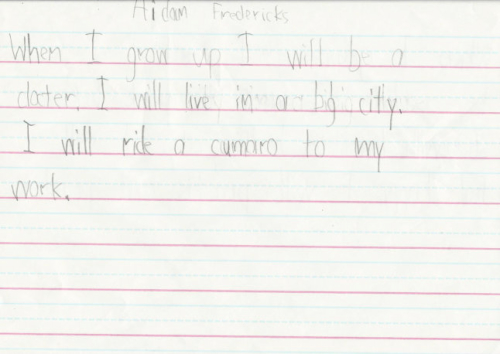 Aidan Fredericks
When I grow up I will be a
docter. I will live in a big city.
I will ride a cumaro to my
work.